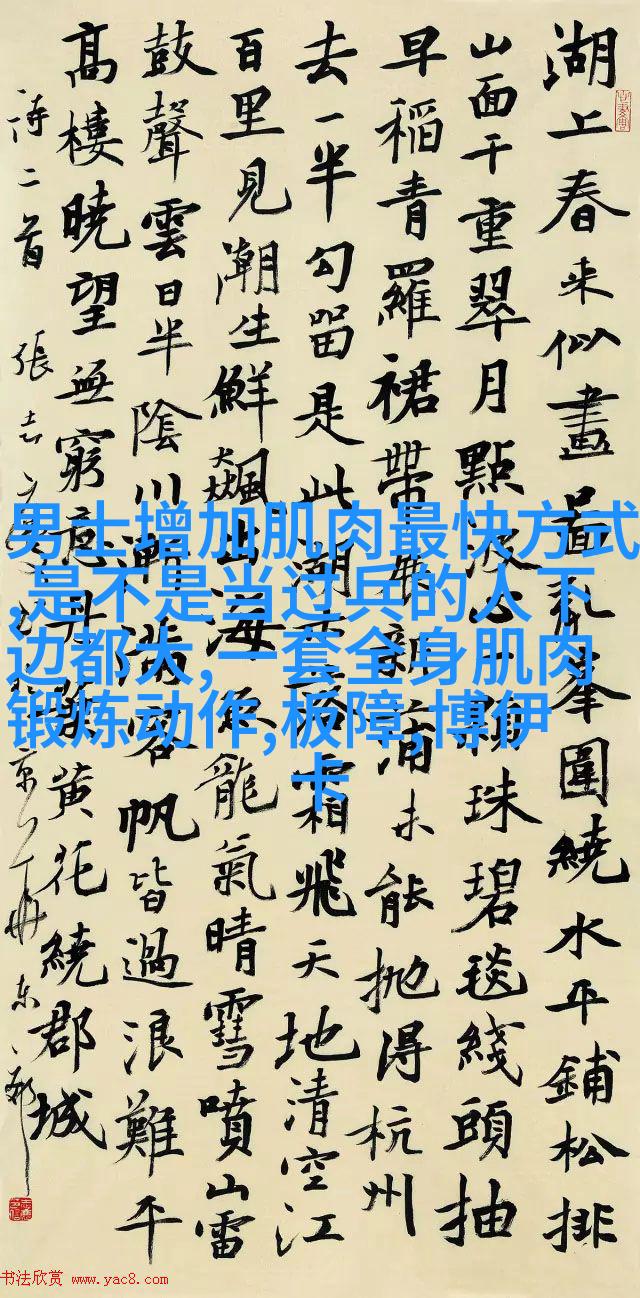 湖上春来似畫圖亂峯圍繞水平鋪松排
山面千重翠月點波心一顆珠碧毯綫頭抽
早稻青羅裙帶展新蒲未能抛得杭州
去一半勾留是此湖 霜飛天地清空江
百里見潮生鮮飆出海魚龍氣晴雪噴山雷
鼓聲雲日半陰川漸滿客帆皆過浪難平
高樓曉望無窮意丹葉黄花繞郡城
詩二首 張志
男士增加肌肉最快方式
,是不是当过兵的人下
边都大,一套全身肌肉
锻炼动作,板障,博伊
卡
书法欣赏 www.yac8.com